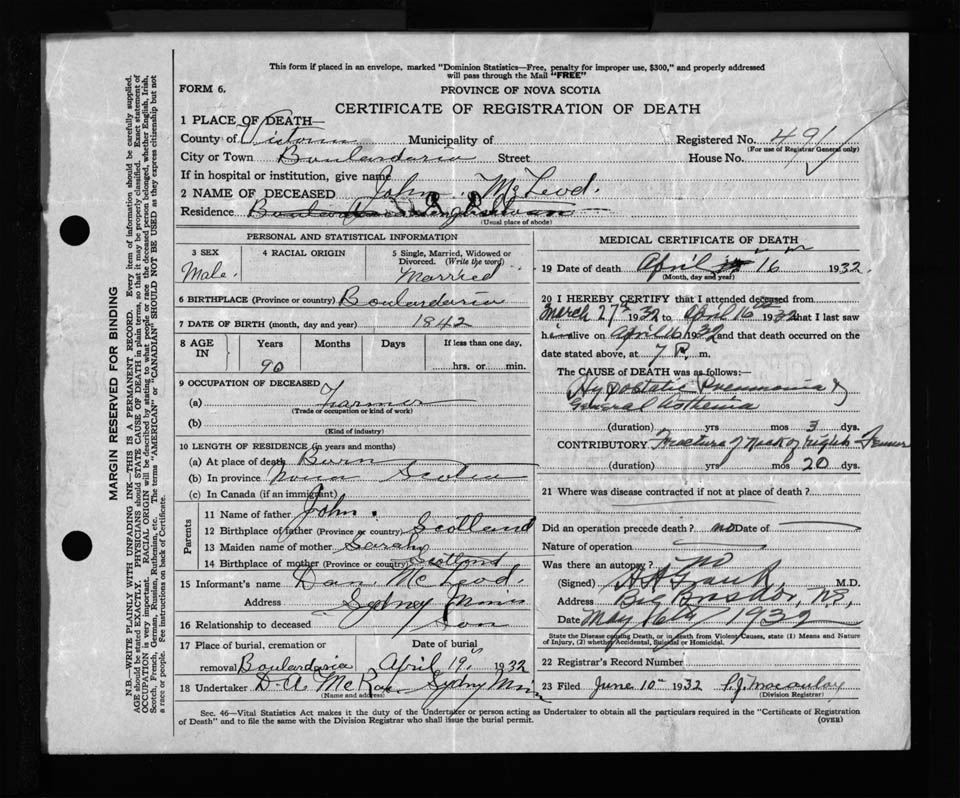 This form if placed in an envelope, marked "Dominion Statistics—Free, penalty for improper use, $300," and properly addressed
will pass through the Mail "FREE"
FORM 6.
PROVINCE OF NOVA SCOTIA
CERTIFICATE OF REGISTRATION OF DEATH
1 PLACE OF DEATH—
County of Victoria Municipality of Registered No. 491
(For use of Registrar General only)
City or Town Boulardaria Street House No.
If in hospital or institution, give name
2 NAME OF DECEASED John McLeod.
Residence
(Usual place of abode)
PERSONAL AND STATISTICAL INFORMATION
3 SEX 4 RACIAL ORIGIN 5 Single, Married, Widowed or
Divorced. (Write the word)
Male. Married
6 BIRTHPLACE (Province or country) Boulardaria
7 DATE OF BIRTH (month, day and year) 1842
8 AGE IN Years Months Days If less than one day,
90 hrs. or min.
9 OCCUPATION OF DECEASED
(a) Farmer
(Trade or occupation or kind of work)
(b)
(Kind of industry)
10 LENGTH OF RESIDENCE (in years and months)
(a) At place of death Born
(b) In province Nova Scotia
(c) In Canada (if an immigrant)
Parents
11 Name of father John.
12 Birthplace of father (Province or country) Scotland
13 Maiden name of mother Sarah
14 Birthplace of mother (Province or country) Scotland
15 Informant's name Dan McLeod.
Address Sydney Mines
16 Relationship to deceased Son
17 Place of burial, cremation or Date of burial
removal Boulardaria April 19th 1932
18 Undertaker D. A. McRae Sydny Mines
(Name and address)
MEDICAL CERTIFICATE OF DEATH
19 Date of death April 16 1932.
(Month, day and year)
20 I HEREBY CERTIFY that I attended deceased from
March 27th 1932 to April 16th 1932 that I last saw
him alive on April 16 1932 and that death occurred on the
date stated above, at 7 P. m.
The CAUSE of DEATH was as follows:—
Hypostatic Pneumonia &
General Asthenia
(duration) yrs mos 3 dys.
CONTRIBUTORY Fracture of Neck of right Femur
(duration) yrs mos 20 dys.
21 Where was disease contracted if not at place of death?
Did an operation precede death? no Date of
Nature of operation
Was there an autopsy? no
(Signed) M.D.
Address Big Bras d'or, N.S.
Date May 16th 1932
State the Disease causing Death, or in death from Violent Causes, state (1) Means and Nature
of Injury, (2) whether Accidental, Suicidal or Homicidal.
22 Registrar's Record Number
23 Filed June 10th 1932 P. J. Macaulay
(Division Registrar)
Sec. 46—Vital Statistics Act makes it the duty of the Undertaker or person acting as Undertaker to obtain all the particulars required in the "Certificate of Registration
of Death" and to file the same with the Division Registrar who shall issue the burial permit.
(OVER)
MARGIN RESERVED FOR BINDING
N.B.—WRITE PLAINLY WITH UNFADING INK—THIS IS A PERMANENT RECORD. Every item of information should be carefully supplied.
AGE should be stated EXACTLY. PHYSICIANS should STATE CAUSE OF DEATH in plain terms, so that it may be properly classified. Exact statement of
OCCUPATION is very important. RACIAL ORIGIN will be described by stating to what people or race the deceased person belonged, whether English, Irish,
Scotch, French, German, Russian, Ruthenian, etc. The terms "AMERICAN" or "CANADIAN" SHOULD NOT BE USED as they express citizenship but not
a race or people. See instructions on back of Certificate.